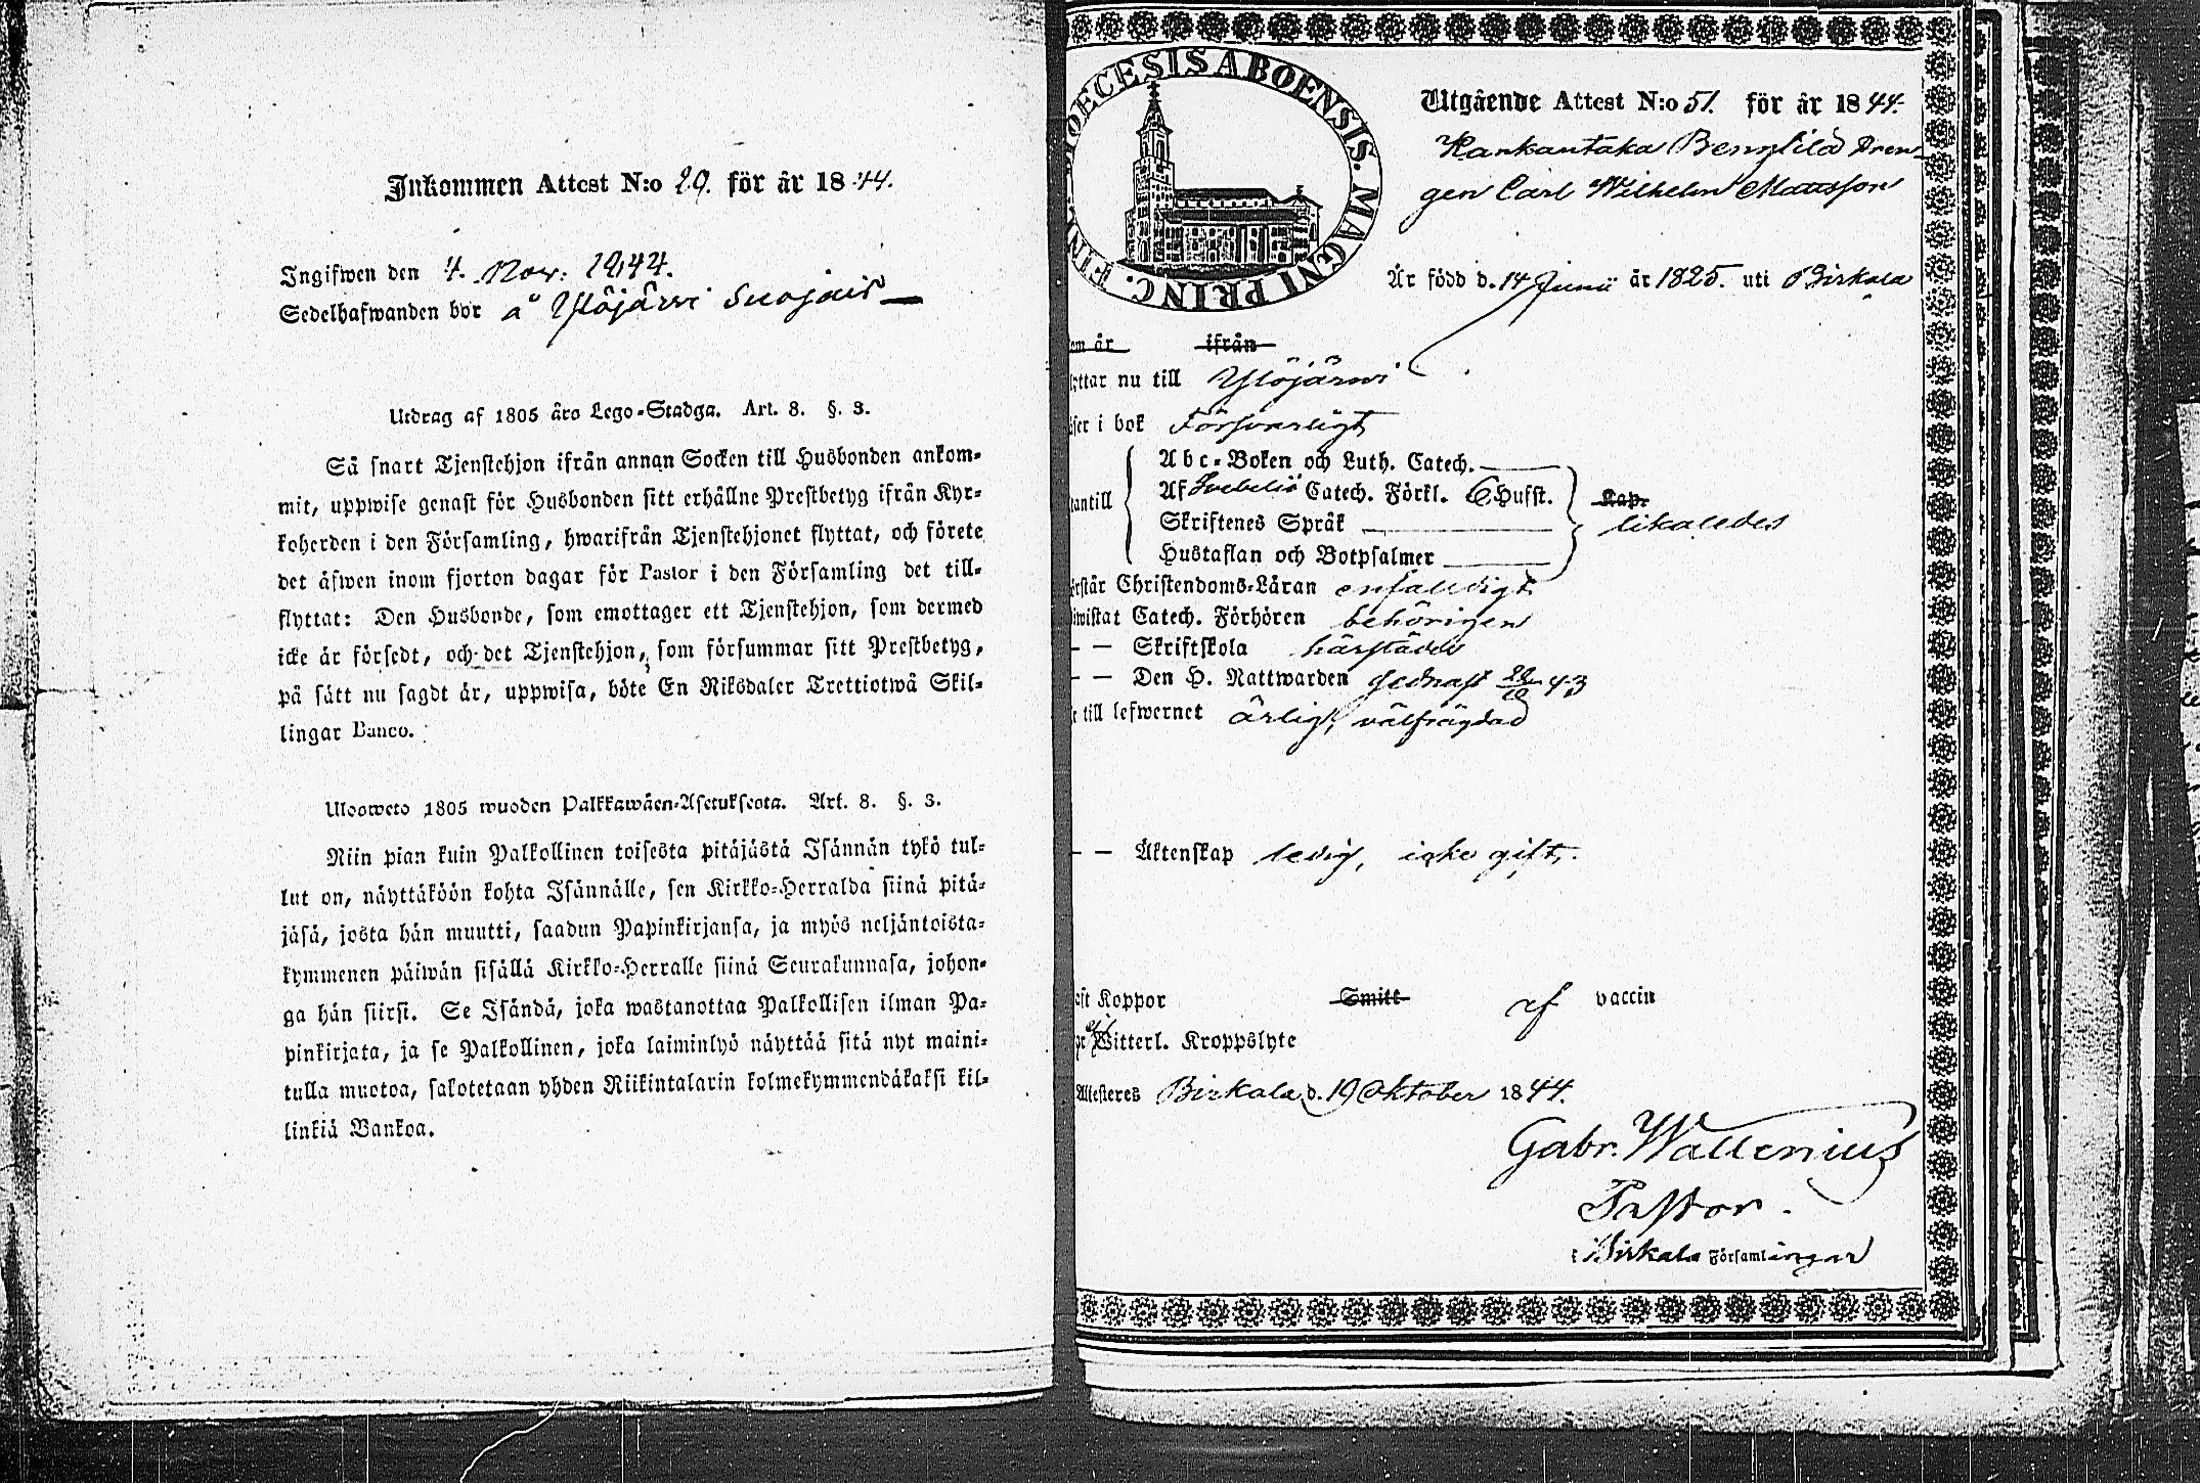 Inkommen Attest N:o 29. för år 1844.
Ingifwen den 4. Nov: 1844.
Sedelhafwanden bor å Ylöjärvi Suojais
Utdrag af 1805 års Lego-Stadga. Art. 8. §. 3.
Så snart Tjenstehjon ifrån annan Socken till Husbonden ankom-
mit, uppwise genast för Husbonden sitt erhållne Prestbetyg ifrån Kyr-
koherden i den Församling, hwarifrån Tjenstehjonet flyttat, och förete
det äfwen inom fjorton dagar för Pastor i den Församling det till-
flyttat: Den Husbonde, som emottager ett Tjenstehjon, som dermed
icke är försedt, och det Tjenstehjon, som försummar sitt Prestbetyg,
på sätt nu sagdt är, uppwisa, böte En Riksdaler Trettiotwå Skil-
lingar Banco.
Ulosweto 1805 wuoden Palkkawäen-Asetuksesta. Art. 8. §. 3.
Niin pian kuin Palkollinen toisesta pitäjästä Isännän tykö tul-
lut on, näyttäköön kohta Isännälle, sen Kirkko-Herralda siinä pitä-
jäsä, josta hän muutti, saadun Papinkirjansa, ja myös neljäntoista-
kymmenen päiwän sisällä Kirkko-Herralle siinä Seurakunnasa, johon-
ga hän siirsi. Se Isändä, joka wastanottaa Palkollisen ilman Pa-
pinkirjata, ja se Palkollinen, joka laiminlyö näyttää sitä nyt maini-
tulla muotoa, sakotetaan yhden Riikintalarin kolmekymmendäkaksi kil-
linkiä Bankoa.
DIOECESIS ABOENSIS. MAGNI PRINC. FIN
Utgående Attest N:o 51. för år 1844.
Kankantaka Bengtilä Dren-
gen Carl Wilhelm Mattsson
Är född d. 14 Junii år 1825. uti Birkala
em år ifrån
yttar nu till Ylöjärvi
äser i bok Försvarligt
Abc-Boken och Luth. Catech.
antill Af Svebelii Catech. Förkl. 6 Hufst. Kap.
Skriftenes Språk likaledes
Hustaflan och Botpsalmer
örstår Christendoms-Läran enfaldigt
iwistat Catech. Förhören behörigen
— — Skriftskola härstädes
— — Den H. Nattwarden sednast 43
r till lefwernet ärlig, välfrägdad
— — Äktenskap ledig, icke gift.
aft Koppor Smitt af vaccin
Witterl. Kroppslyte
Attesteres Birkala d. 19 Oktober 1844.
Gabr. Wallenius
Pastor.
i Birkala Församlingar